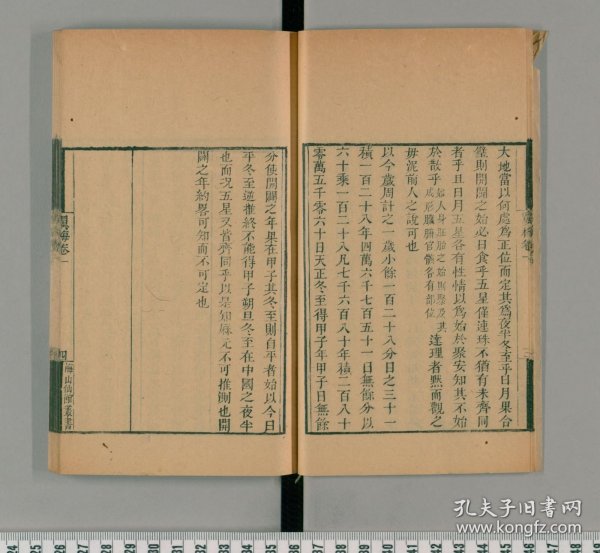 大地當以何處爲正位而定其爲夜半冬至乎日月果合
璧則開闢之始必日食乎五星僅連珠不猶有未齊同
者乎且日月五星各有性情以爲始於聚安知其不始
於散乎如人身胚胎之始則聚及其成形臟腑官骸各有部位達理者默而觀之
毋泥前人之說可也
以今歲周計之一歲小餘一百二十八分日之三十一
積一百二十八年四萬六千七百五十一日無餘分以
六十乘一百二十八凡七千六百八十年積二百八十
零萬五千零六十日天正冬至得甲子年甲子日無餘
分使開闢之年果在甲子其冬至則自平者始以今日
平冬至遞推終不能得甲子朔旦冬至在中國之夜半
也而况五星又皆齊同乎以是知厤元不可推測也開
闢之年約畧可知而不可定也
翼梅卷一
四
海山僊館叢書
孔夫子旧书网
www.kongfz.com
24 25 26 27 28 29 30 31 32 33 34 35 36 37 38 39 40 41 42 43 44 45 46 47 48 49